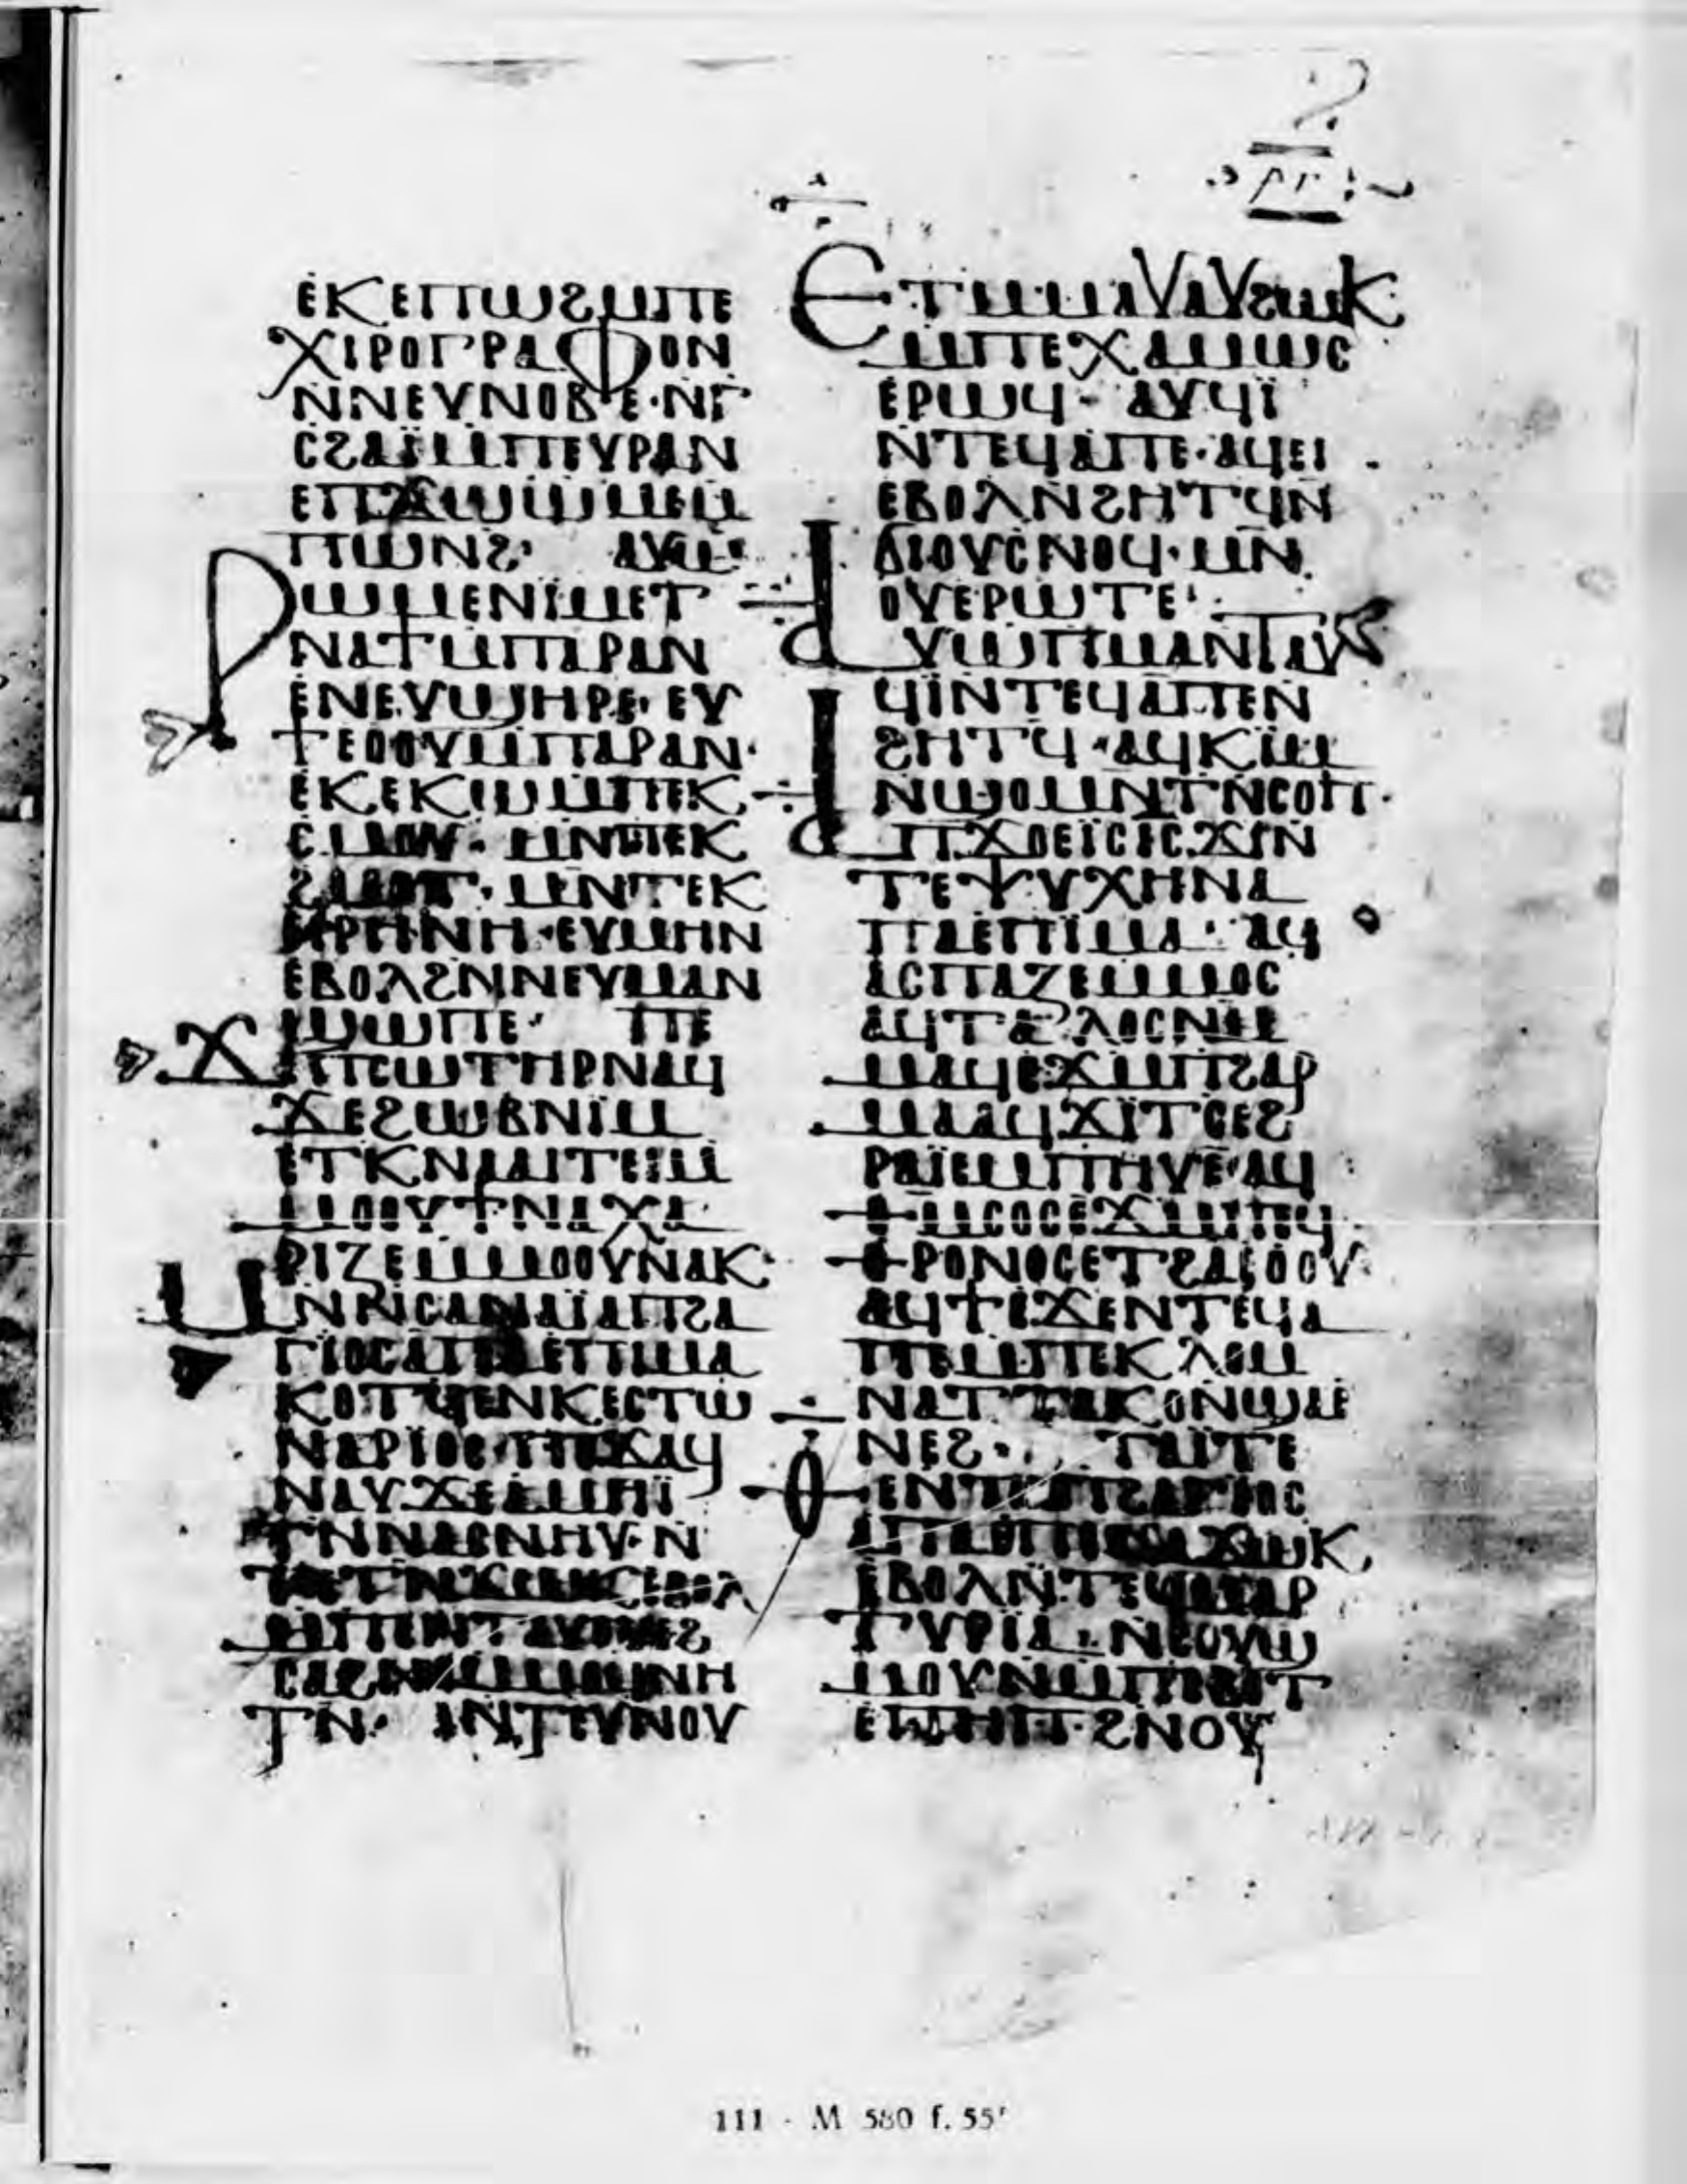 ⲣⲓ
ⲉⲕⲉⲡⲱϩⲙⲡⲉ
ⲭⲓⲣⲟⲅⲣⲁⲫⲟⲛ
ⲛⲛⲉⲩⲛⲟⲃⲉ·ⲛⲅ
ⲥϩⲁⲓ̈ⲙⲡⲉⲩⲣⲁⲛ
ⲉⲡϫⲱⲱⲙⲉⲙ
ⲡⲱⲛϩ· ⲁⲩⲱ
ⲣⲱⲙⲉⲛⲓⲙⲉⲧ
ⲛⲁϯⲙⲡⲁⲣⲁⲛ
ⲉⲛⲉⲩϣⲏⲣⲉ·ⲉⲩ
ϯⲉⲟⲟⲩⲙⲡⲁⲣⲁⲛ·
ⲉⲕⲉⲕⲱⲙⲡⲉⲕ
ⲥⲙⲟⲩ·ⲙⲛⲡⲉⲕ
ϩⲙⲟⲧ·ⲙⲛⲧⲉⲕ
ⲓⲣⲏⲛⲏ·ⲉⲩⲙⲏⲛ
ⲉⲃⲟⲗϩⲛⲛⲉⲩⲙⲁⲛ
ϣⲱⲡⲉ· ⲡⲉ
ϫⲁⲡⲥⲱⲧⲏⲣⲛⲁϥ
ϫⲉϩⲱⲃⲛⲓⲙ
ⲉⲧⲕⲛⲁⲁⲓⲧⲉⲓⲙ
ⲙⲟⲟⲩϯⲛⲁⲭⲁ
ⲣⲓⲍⲉⲙⲙⲟⲟⲩⲛⲁⲕ·
ⲙⲛⲛⲥⲁⲛⲁⲓ̈ⲁⲡϩⲁ
ⲅⲓⲟⲥⲁⲡⲁⲉⲡⲓⲙⲁ
ⲕⲟⲧϥⲉⲛⲕⲉⲥⲧⲱ
ⲛⲁⲣⲓⲟⲥ·ⲡⲉϫⲁϥ
ⲛⲁⲩϫⲉⲁⲙⲏⲓ̈
ⲧⲛⲛⲁⲥⲛⲏⲩ·ⲛ
ⲧⲉⲧⲛϫⲱⲕⲉⲃⲟⲗ
ⲙⲡⲉⲛⲧⲁⲩⲟⲩⲉϩ
ⲥⲁϩⲛⲉⲙⲙⲟϥⲛⲏ
ⲧⲛ· ⲛⲧⲉⲩⲛⲟⲩ
ⲉⲧⲙⲙⲁⲩⲁⲩϩⲱⲕ
ⲙⲡⲉⲭⲁⲙⲱⲥ
ⲉⲣⲱϥ· ⲁⲩϥⲓ̈
ⲛⲧⲉϥⲁⲡⲉ·ⲁϥⲉⲓ
ⲉⲃⲟⲗⲛϩⲏⲧϥⲛ
ϭⲓⲟⲩⲥⲛⲟϥ·ⲙⲛ
ⲟⲩⲉⲣⲱⲧⲉ·
ⲁⲩⲱⲡⲙⲁⲛⲧⲁⲩ
ϥⲓⲛⲧⲉϥⲁⲡⲉⲛ
ϩⲏⲧϥ·ⲁϥⲕⲓⲙ
ⲛϣⲟⲙⲛⲧⲛⲥⲟⲡ·
ⲁⲡϫⲟⲉⲓⲥⲓⲥ·ϫⲓⲛ
ⲧⲉⲯⲩⲭⲏⲛⲁ
ⲡⲁⲉⲡⲓⲙⲁ·ⲁϥ
ⲁⲥⲡⲁⲍⲉⲙⲙⲟⲥ
ⲁϥⲧⲁⲗⲟⲥⲛⲙ
ⲙⲁϥⲉϫⲙⲡϩⲁⲣ
ⲙⲁⲁϥϫⲓⲧⲥⲉϩ
ⲣⲁⲓ̈ⲉⲙⲡⲏⲩⲉ·ⲁϥ
ⲑⲙⲥⲟⲥⲉϫⲙⲡⲉϥ
ⲑⲣⲟⲛⲟⲥⲉⲧϩⲁⲉⲟⲟⲩ·
ⲁϥϯⲉϫⲉⲛⲧⲉϥⲁ
ⲡⲉⲙⲡⲉⲕⲗⲟⲙ
ⲛⲁⲧⲧⲁⲕⲟⲛϣⲁⲉ
ⲛⲉϩ· ⲧⲁⲓⲧⲉ
ⲑⲉⲛⲧⲁⲡϩⲁⲅⲓⲟⲥ
ⲁⲡⲁⲉⲡⲓⲙⲁϫⲱⲕ
ⲉⲃⲟⲗⲛⲧⲉϥⲙⲁⲣ
ⲧⲩⲣⲓⲁ·ⲛⲥⲟⲩⲱ
ⲙⲟⲩⲛⲙⲡⲉⲃⲟⲧ
ⲉⲡⲏⲡ·ϩⲛⲟⲩ
111 - M 580 f. 55ʳ